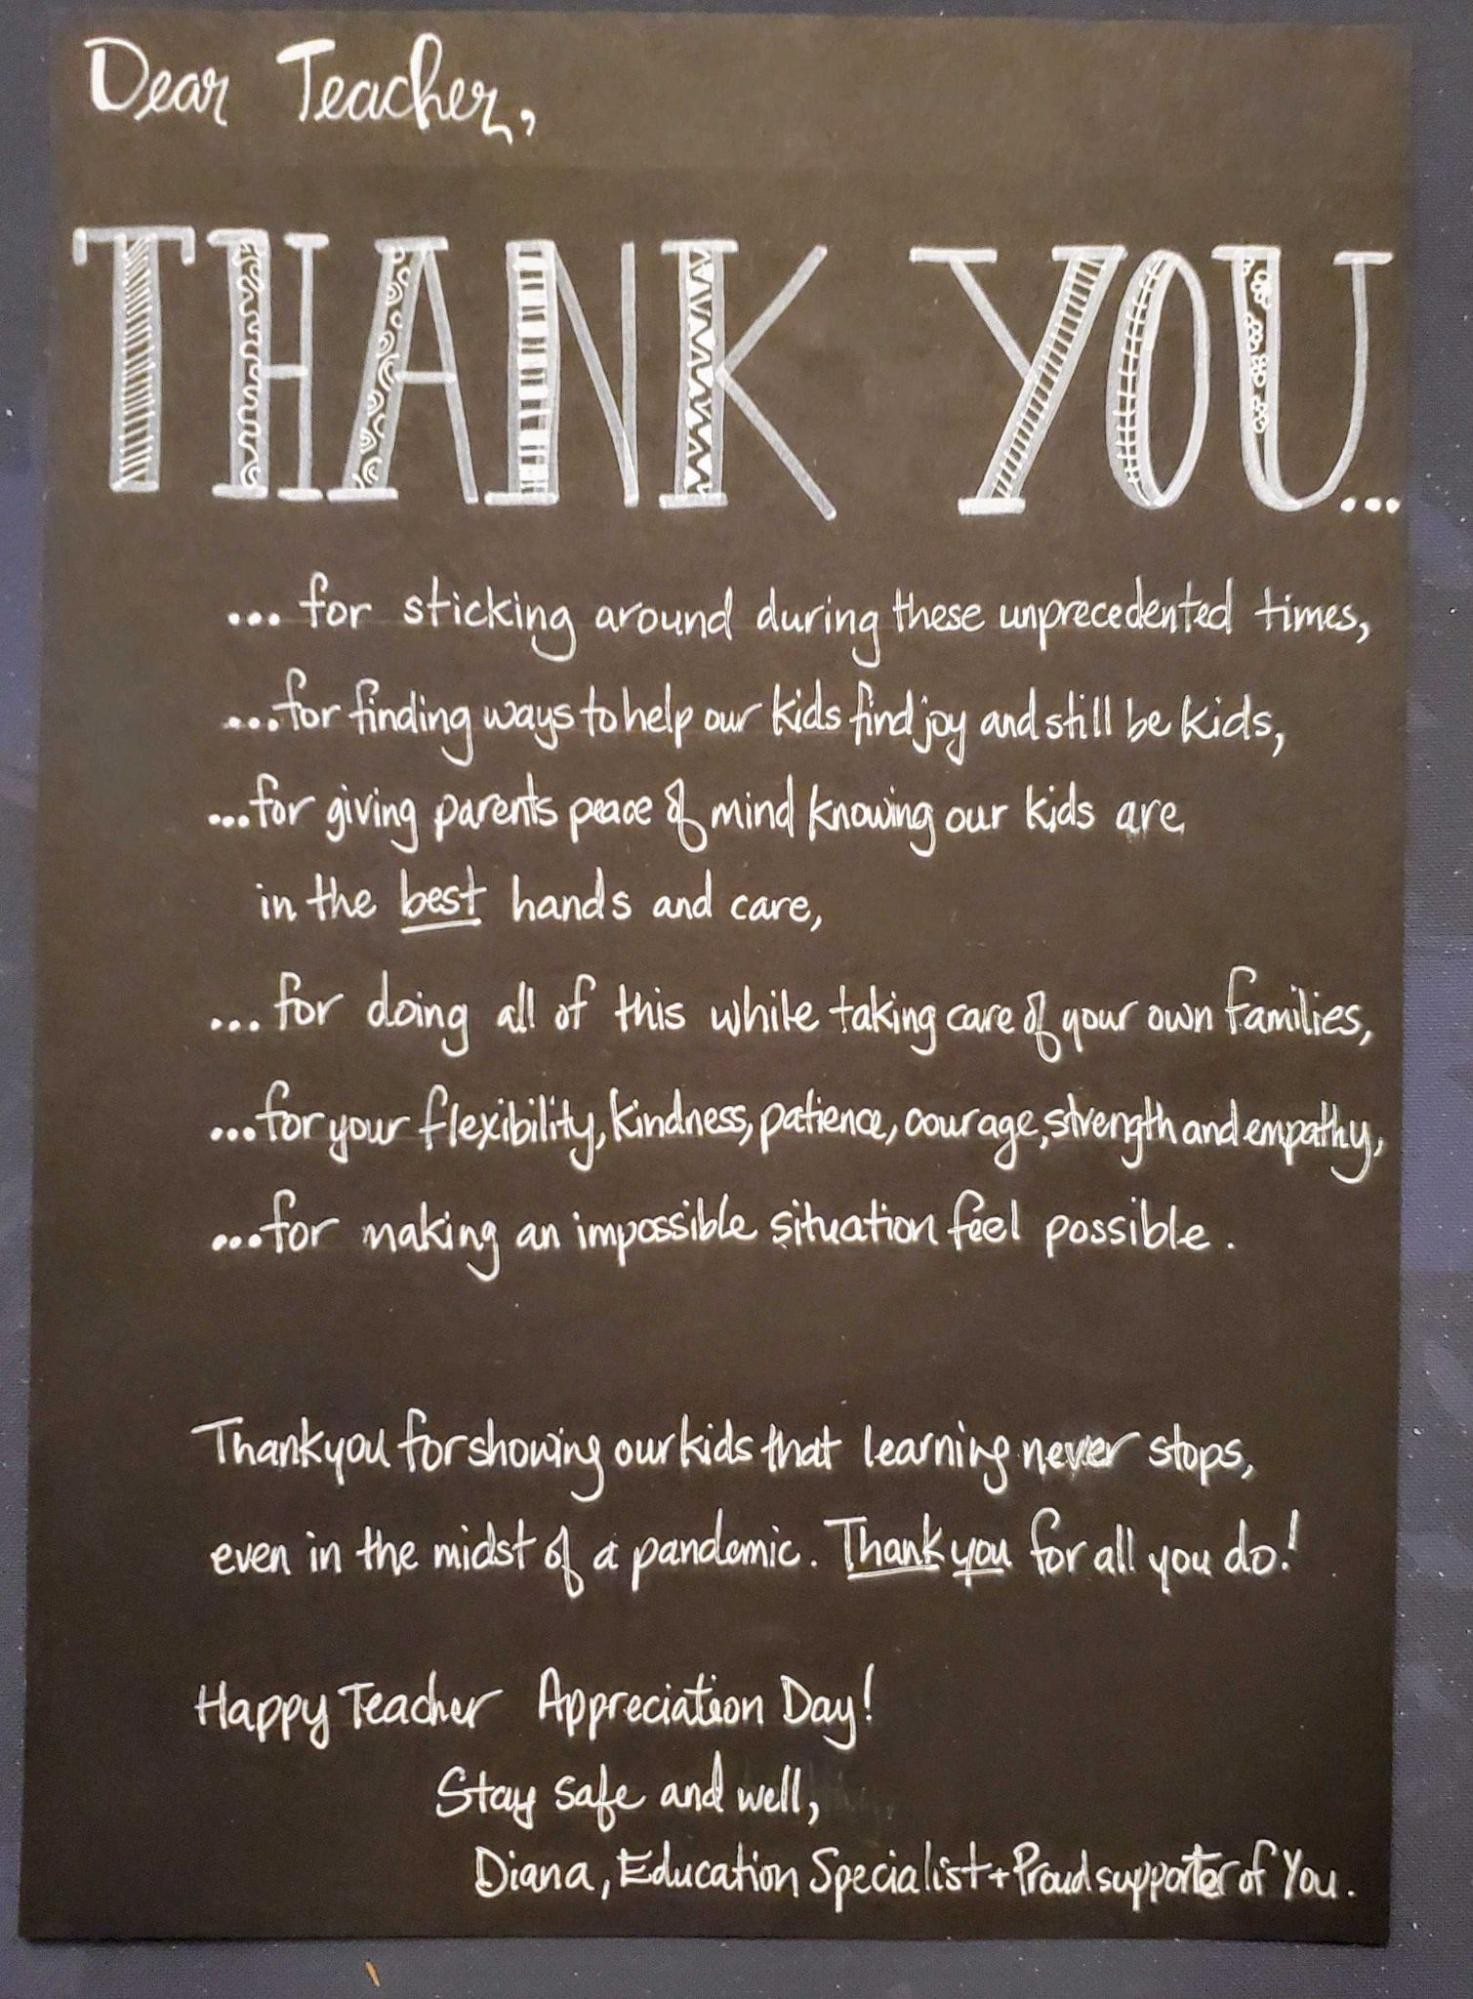 Dear Teacher,
THANK YOU...
... for sticking around during these unprecedented times,
...for finding ways to help our kids find joy and still be kids,
...for giving parents peace of mind knowing our kids are
in the best hands and care,
... for doing all of this while taking care of your own families,
...for your flexibility, kindness, patience, courage, strength and empathy,
...for making an impossible situation feel possible.
Thank you for showing our kids that learning never stops,
even in the midst of a pandemic. Thank you for all you do!
Happy Teacher Appreciation Day!
Stay safe and well,
Diana, Education Specialist + Proud supporter of You.